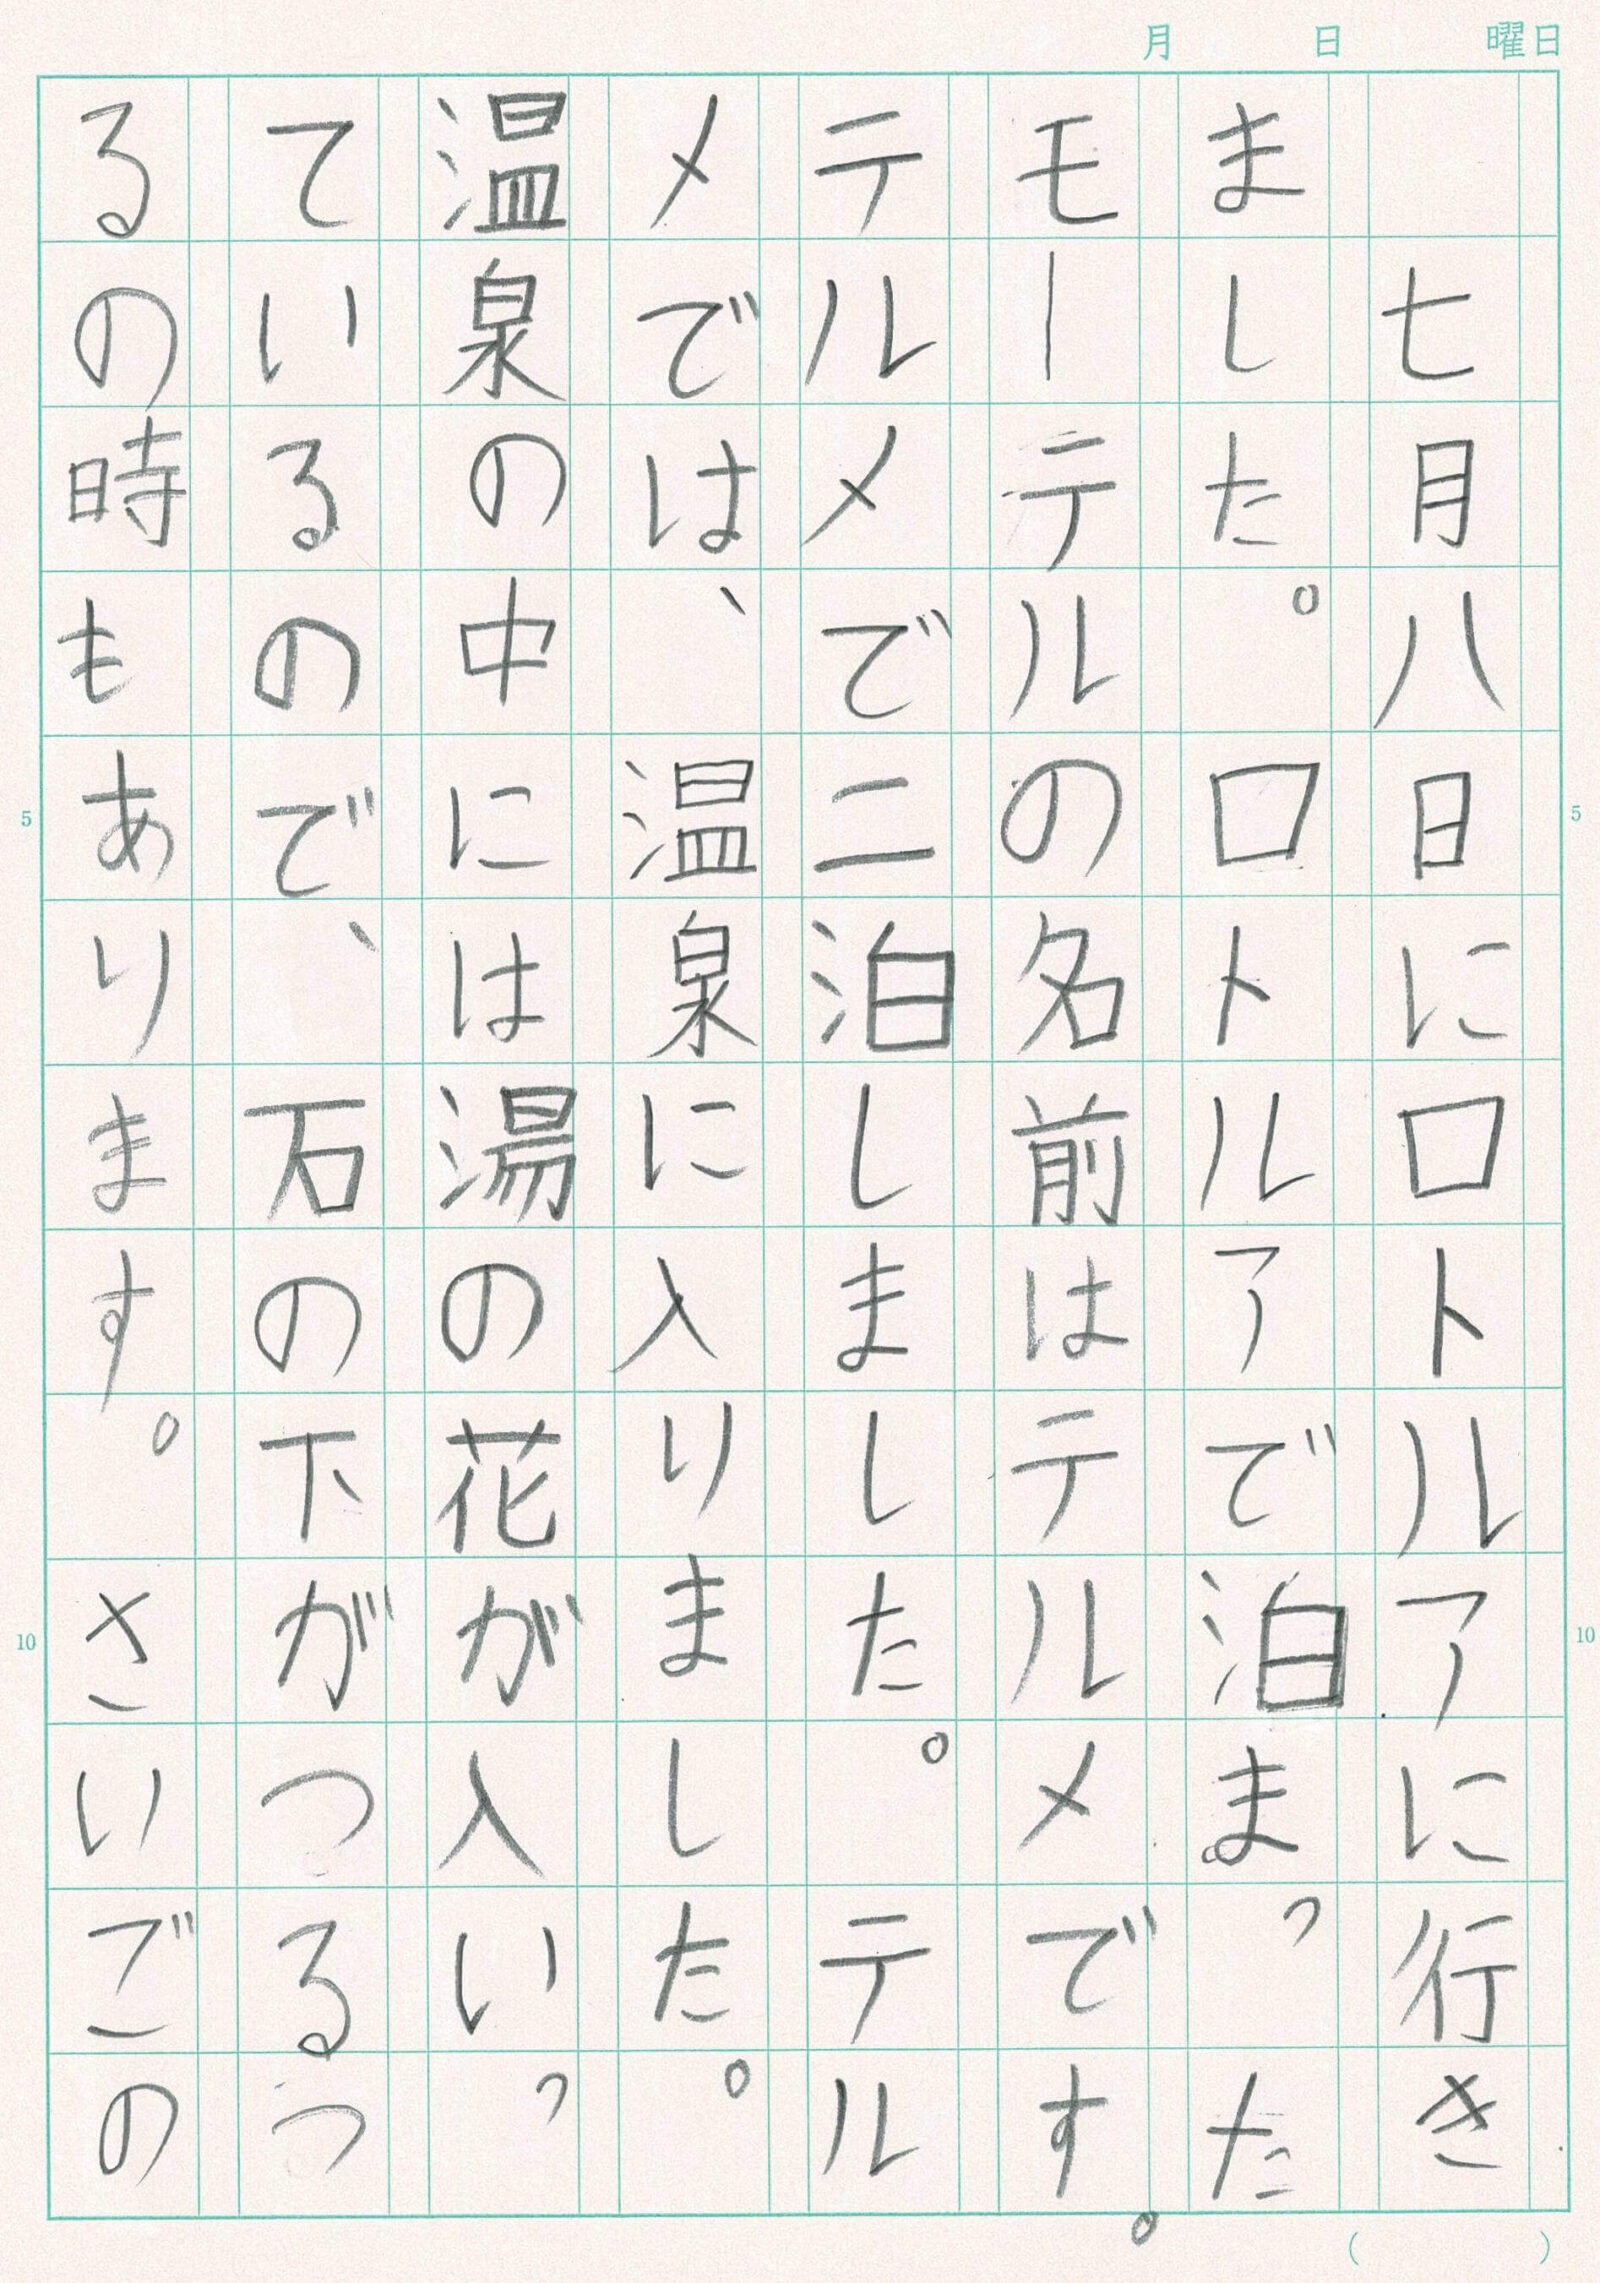 月　日　曜日
七月八日にロトルアに行き
ました。ロトルアで泊まった
モーテルの名前はテルメです。
テルメで二泊しました。テル
メでは、温泉に入りました。
温泉の中には湯の花が入いっ
ているので、石の下がつるつ
るの時もあります。さいごの
5
10
5
10
(　)